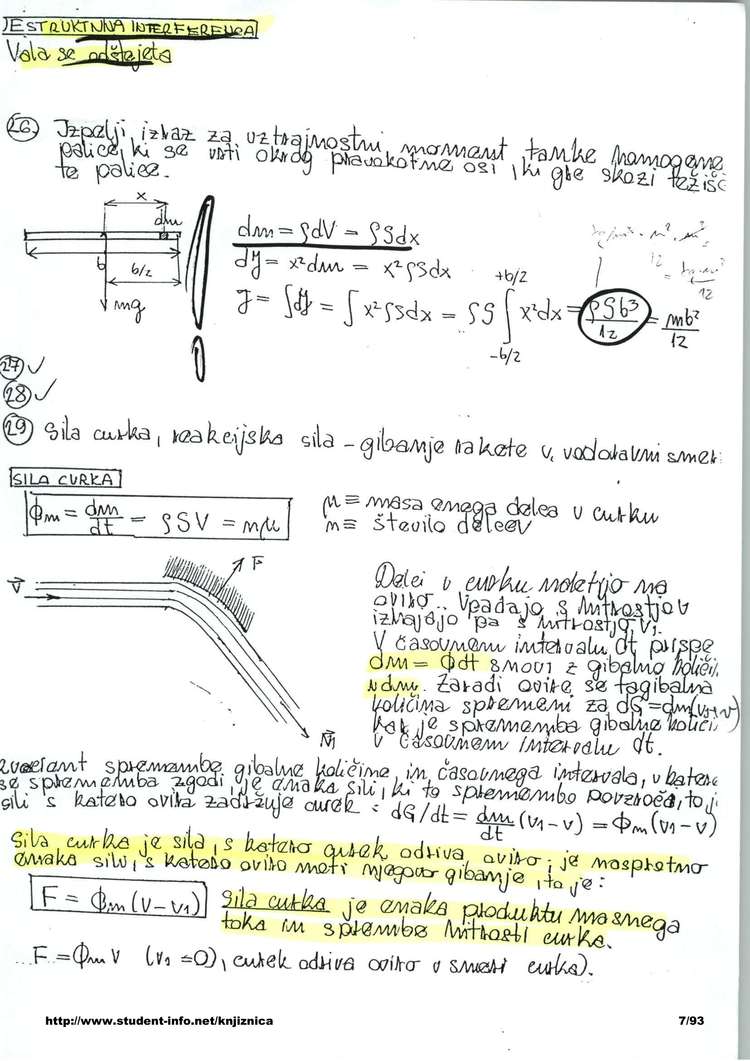 DESTRUKTIVNA INTERFERENCA
Vala se odštejeta
26. Izpelji izraz za vztrajnostni moment tanke homogene
palice, ki se vrti okrog pravokotne osi, ki gre skozi težišč
te palice.
x
dm
b
b/2
mg
dm = ρdV = ρSdx
dJ = x²dm = x²ρSdx
J = ∫dJ = ∫x²ρSdx = ρS ∫ x²dx = ρSb³/12 = mb²/12
+b/2
-b/2
27 ✓
28 ✓
29 Sila curka, reakcijska sila - gibanje rakete v vodoravni smeri
SILA CURKA
Φm = dm/dt = ρSV = nμ
μ ≡ masa enega delca v curku
n ≡ število delcev
v
F
v₁
Delci v curku naletijo na
oviro. Vpadajo s hitrostjo v
izhajajo pa s hitrostjo v₁.
V časovnem intervalu dt prispe
dm = Φdt snovi z gibalno količin.
vdm. Zaradi ovire se ta gibalna
količina spremeni za dG = dm(v₁-v)
kar je sprememba gibalne količin
v časovnem intervalu dt.
Kvocient spremembe gibalne količine in časovnega intervala, v katere
se sprememba zgodi, je enaka sili, ki to spremembo povzroča, to j
sili s katero ovira zadržuje curek: dG/dt = dm/dt (v₁-v) = Φm(v₁-v)
Sila curka je sila, s katero curek odriva oviro; je nasprotno
enaka silv, s katero oviro moti njegovo gibanje, to je:
F = Φm(v-v₁)
Sila curka je enaka produktu masnega
toka in sprembe hitrosti curka.
F = Φm v (v₁ = 0), curek odriva oviro v smeri curka).
http://www.student-info.net/knjiznica
7/93